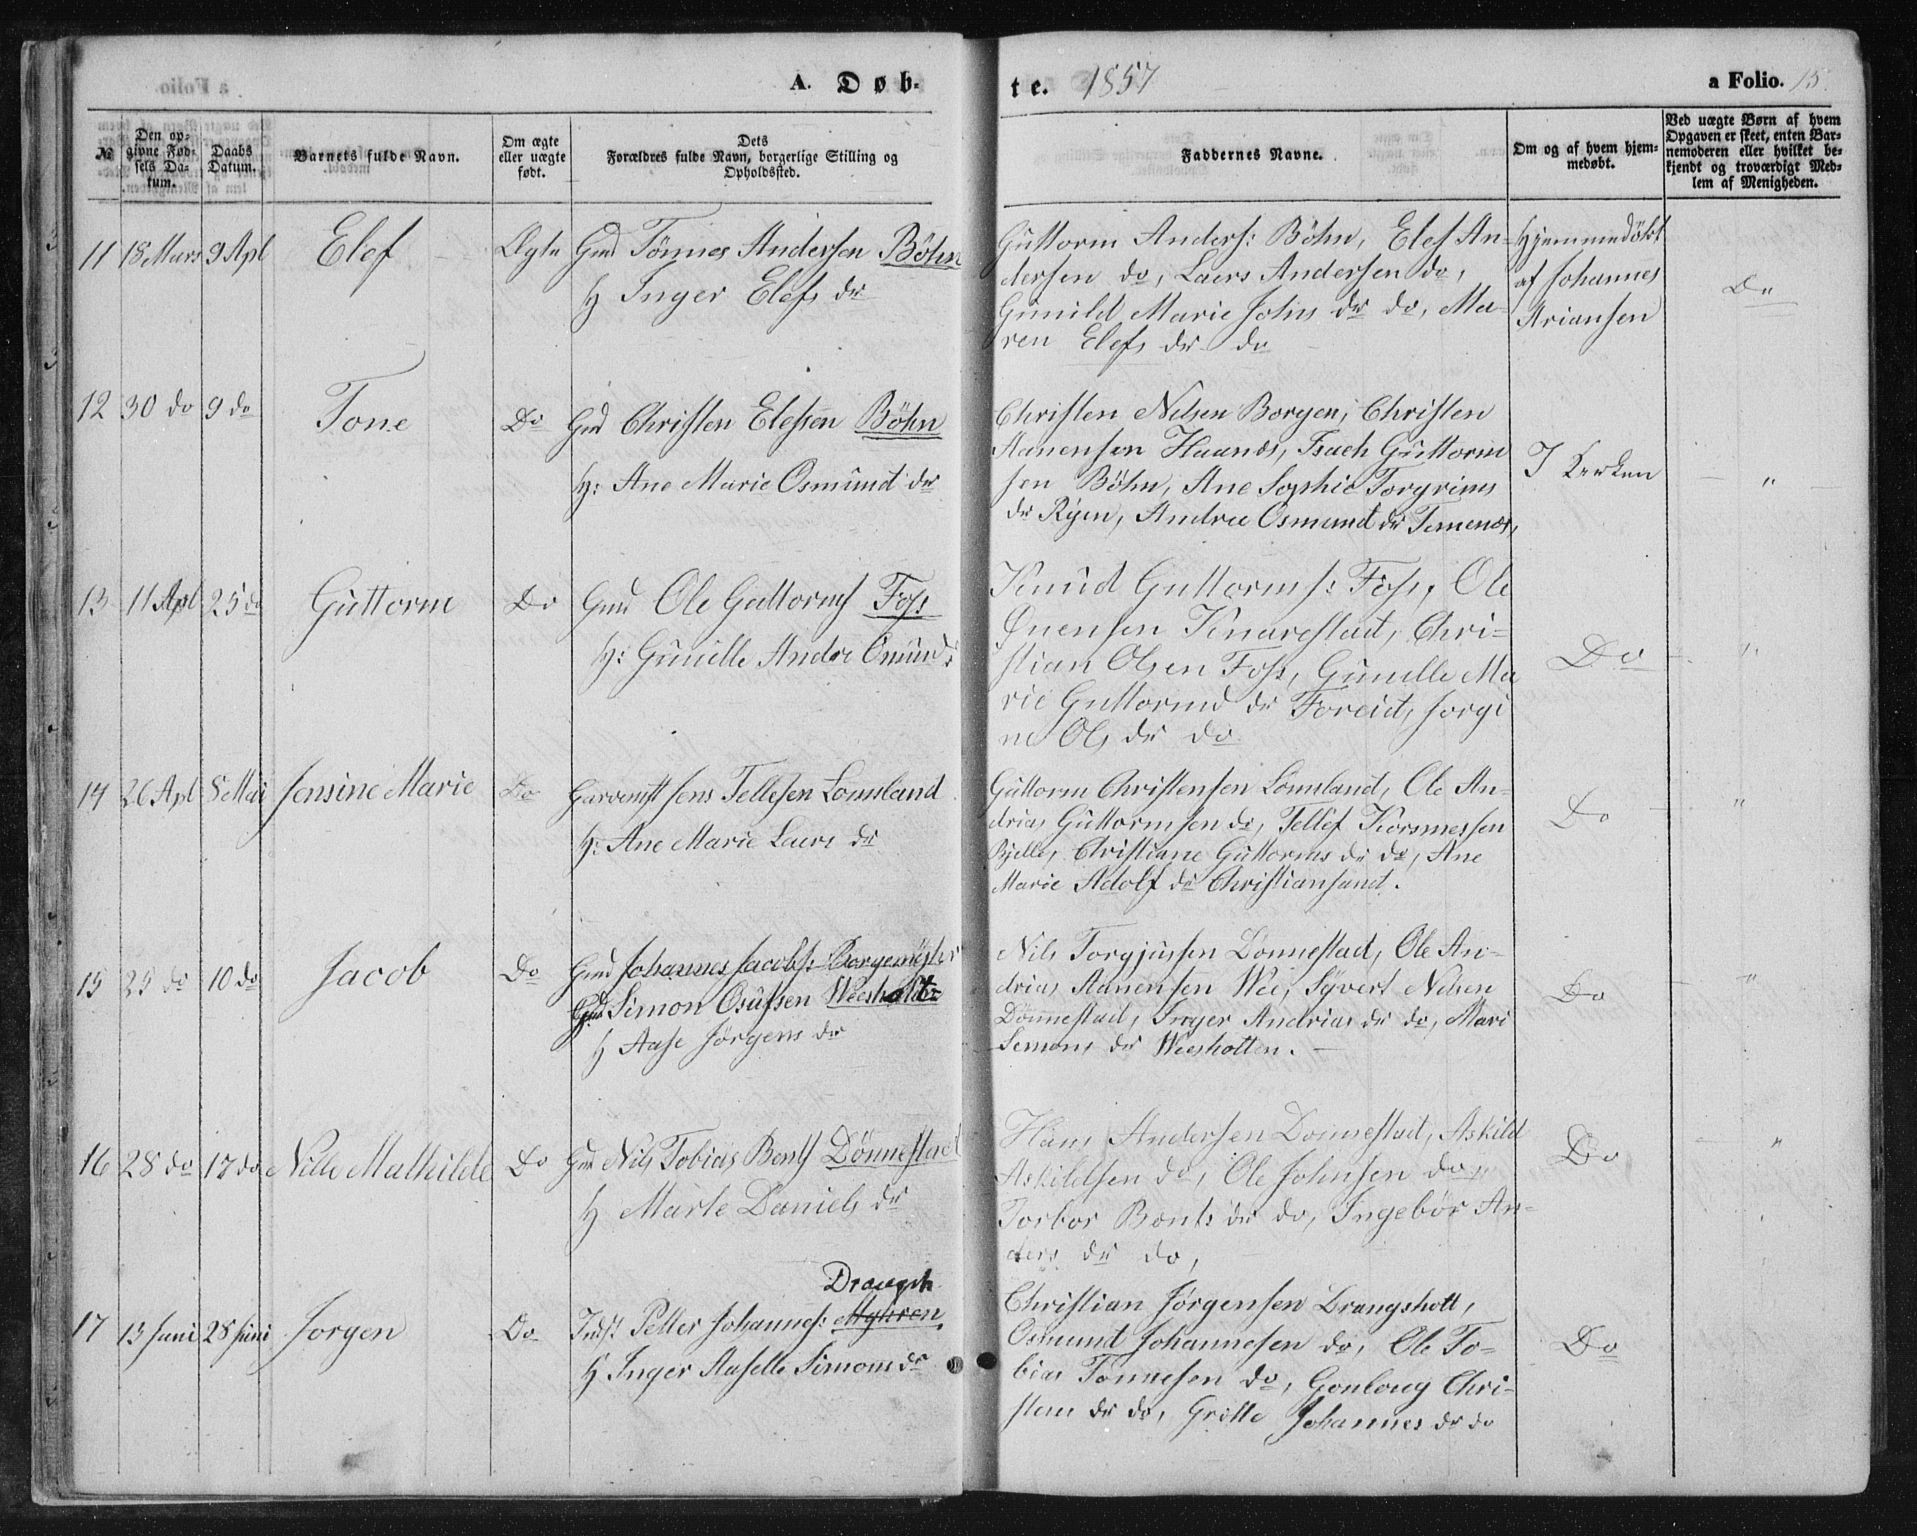 A. Døb-
te. 1857
a Folio. 15.
№
Den op-
givne Fød-
sels Da-
tum.
Daabs
Datum.
Barnets fulde Navn.
Om ægte
eller uægte
født.
Dets
Forældres fulde Navn, borgerlige Stilling og
Opholdssted.
Faddernes Navne.
Om og af hvem hjem-
medøbt.
Ved uægte Børn af hvem
Opgaven er skeet, enten Bar-
nemoderen eller hvilket be-
kjendt og troværdigt Med-
lem af Menigheden.
11 18 Mars 9 Apl Elef Ægte Gmd Tönnes Andersen Böhn
H Inger Elefs dr
Guttorm Anders: Böhn, Elef An-
dersen do, Laers Andersen do,
Gunild Marie Johns dr do, Ma-
ren Elefs dr do
Hjemmedöbt
af Johannes
Ariansen
Do
12 30 do 9 do Tone Do Gmd Christen Elefsen Böhn
H: Ane Marie Osmund dr
Christen Nilsen Borgen, Christen
Aanensen Haanes, Isach Guttorm
sen Böhn, Ane Sophie Torgrims
dr Rÿen, Andrea Osmund dr Temenes,
I Kerken
"
13 11 Apl 25 do Guttorm Do Gmd Ole Guttorms Foss
H: Gunille Andre Omund dr
Knud Guttorms: Foss, Ole
Ovensen Knarestad, Chri-
stian Olsen Foss, Gunille Ma
rie Guttormd dr Foreid, Jorgi
ne Ols dr do
Do
"
14 26 Apl 8 Mai Jensine Marie Do Garvemst Jens Tellefsen Lomsland
H: Ane Marie Laers dr
Guttorm Christensen Lomsland, Ole An-
drias Guttormsen do, Tellef Korsmessen
Bjelle, Christiane Guttorms dr do, Ane
Marie Adolf dr Christiansand.
Do
"
15 25 do 10 do Jacob Do Gmd Johannes Jacobs: Borgemester
Gmd Simon Osufsen Weesholt
H Aase Jörgens dr
Nils Torgjussen Donnestad, Ole An-
drias Aanensen Wee, Syvert Nilsen
Dönnestad, Inger Andrias dr do, Mari
Semons dr Weesholten.
Do
"
16 28 do 17 do Nille Mathilde Do Gmd Nils Tobias Bents Dönnestad
H Marte Daniels dr
Hans Andersen Donnestad, Askild
Askildsen do, Ole Johnsen do,
Torbor Bents dr do, Ingebör An-
ders dr do,
Do
"
Drangsh
17 13 Juni 28 Juni Jorgen Do Indst Petter Johannes: Myhren
H Inger Aaselle Simons dr
Christian Jörgensen Drangsholt,
Osmund Johannesen do, Ole To-
bias Tönnesen do, Gonloug Chri-
stens dr do, Gritte Johannes dr do
Do